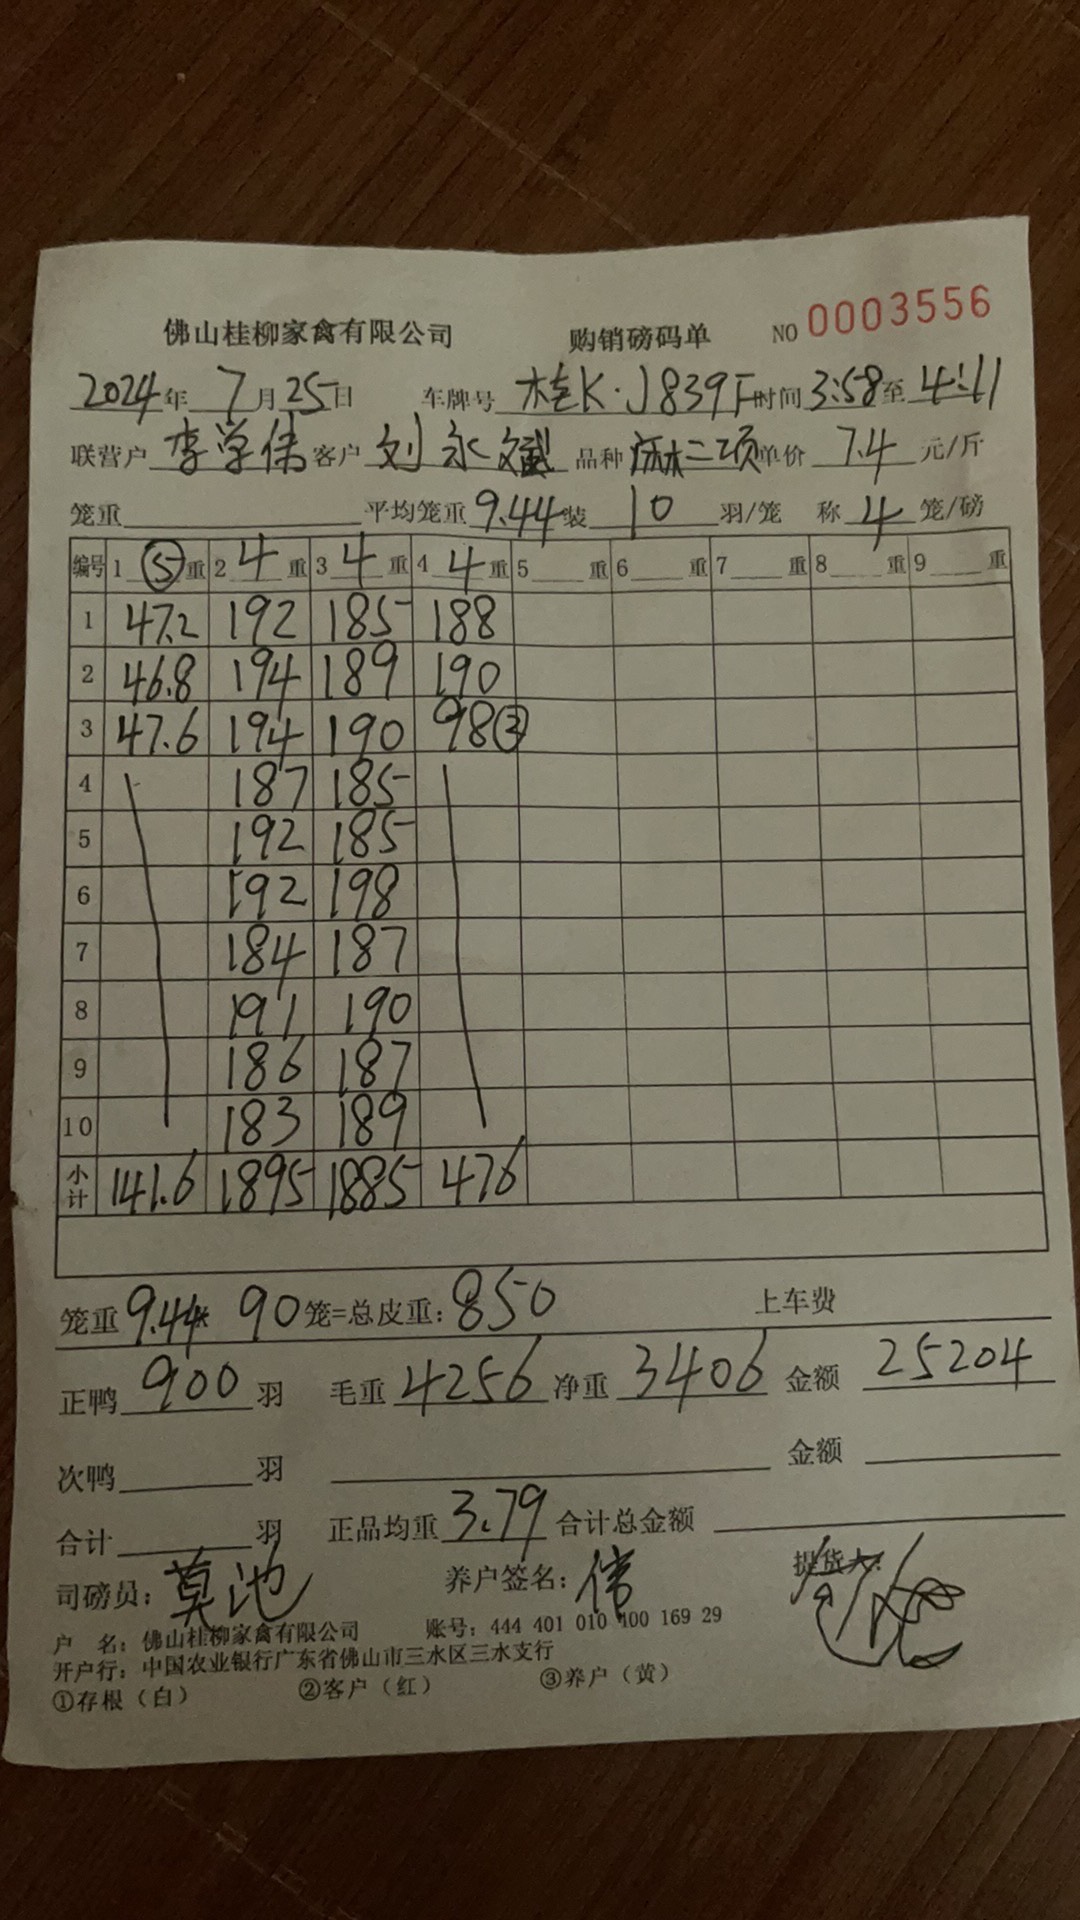 佛山桂柳家禽有限公司 购销磅码单 NO 0003556
2024年 7月25日 车牌号 桂K·J839F 时间 3:58至4:11
联营户 李学伟 客户 刘永斌 品种 麻二项 单价 7.4 元/斤
笼重 平均笼重 9.44 装 10 羽/笼 称 4 笼/磅
编号 1 ⑤ 重 2 4 重 3 4 重 4 4 重 5 重 6 重 7 重 8 重 9 重
1 47.2 192 185 188
2 46.8 194 189 190
3 47.6 194 190 98②
4 187 185
5 192 185
6 192 198
7 184 187
8 191 190
9 186 187
10 183 189
小计 141.6 1895 1885 476
笼重 9.44* 90 笼=总皮重: 850 上车费
正鸭 900 羽 毛重 4256 净重 3406 金额 25204
次鸭 羽 金额
合计 羽 正品均重 3.79 合计总金额
司磅员: 莫池 养户签名: 伟 提货人:
户 名: 佛山桂柳家禽有限公司 账号: 444 401 010 400 169 29
开户行: 中国农业银行广东省佛山市三水区三水支行
①存根（白） ②客户（红） ③养户（黄）